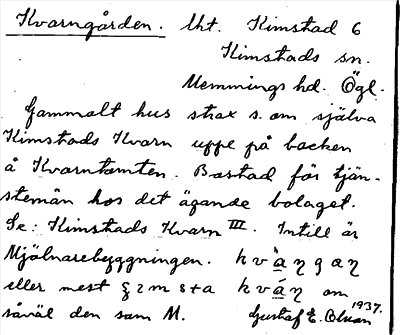 Kvarngården. lht. Kimstad 6
Kimstads sn.
Memmings hd. Ögl.
Gammalt hus strax s. om själva
Kimstads Kvarn uppe på backen
å Kvarntomten. Bostad för tjän-
stemän hos det ägande bolaget.
Se: Kimstads Kvarn III. Intill är
Mjölnarebyggningen. kvàŋgaŋ
eller mest kváŋ om
såväl den som M. Gustaf E. Olsson 1937.